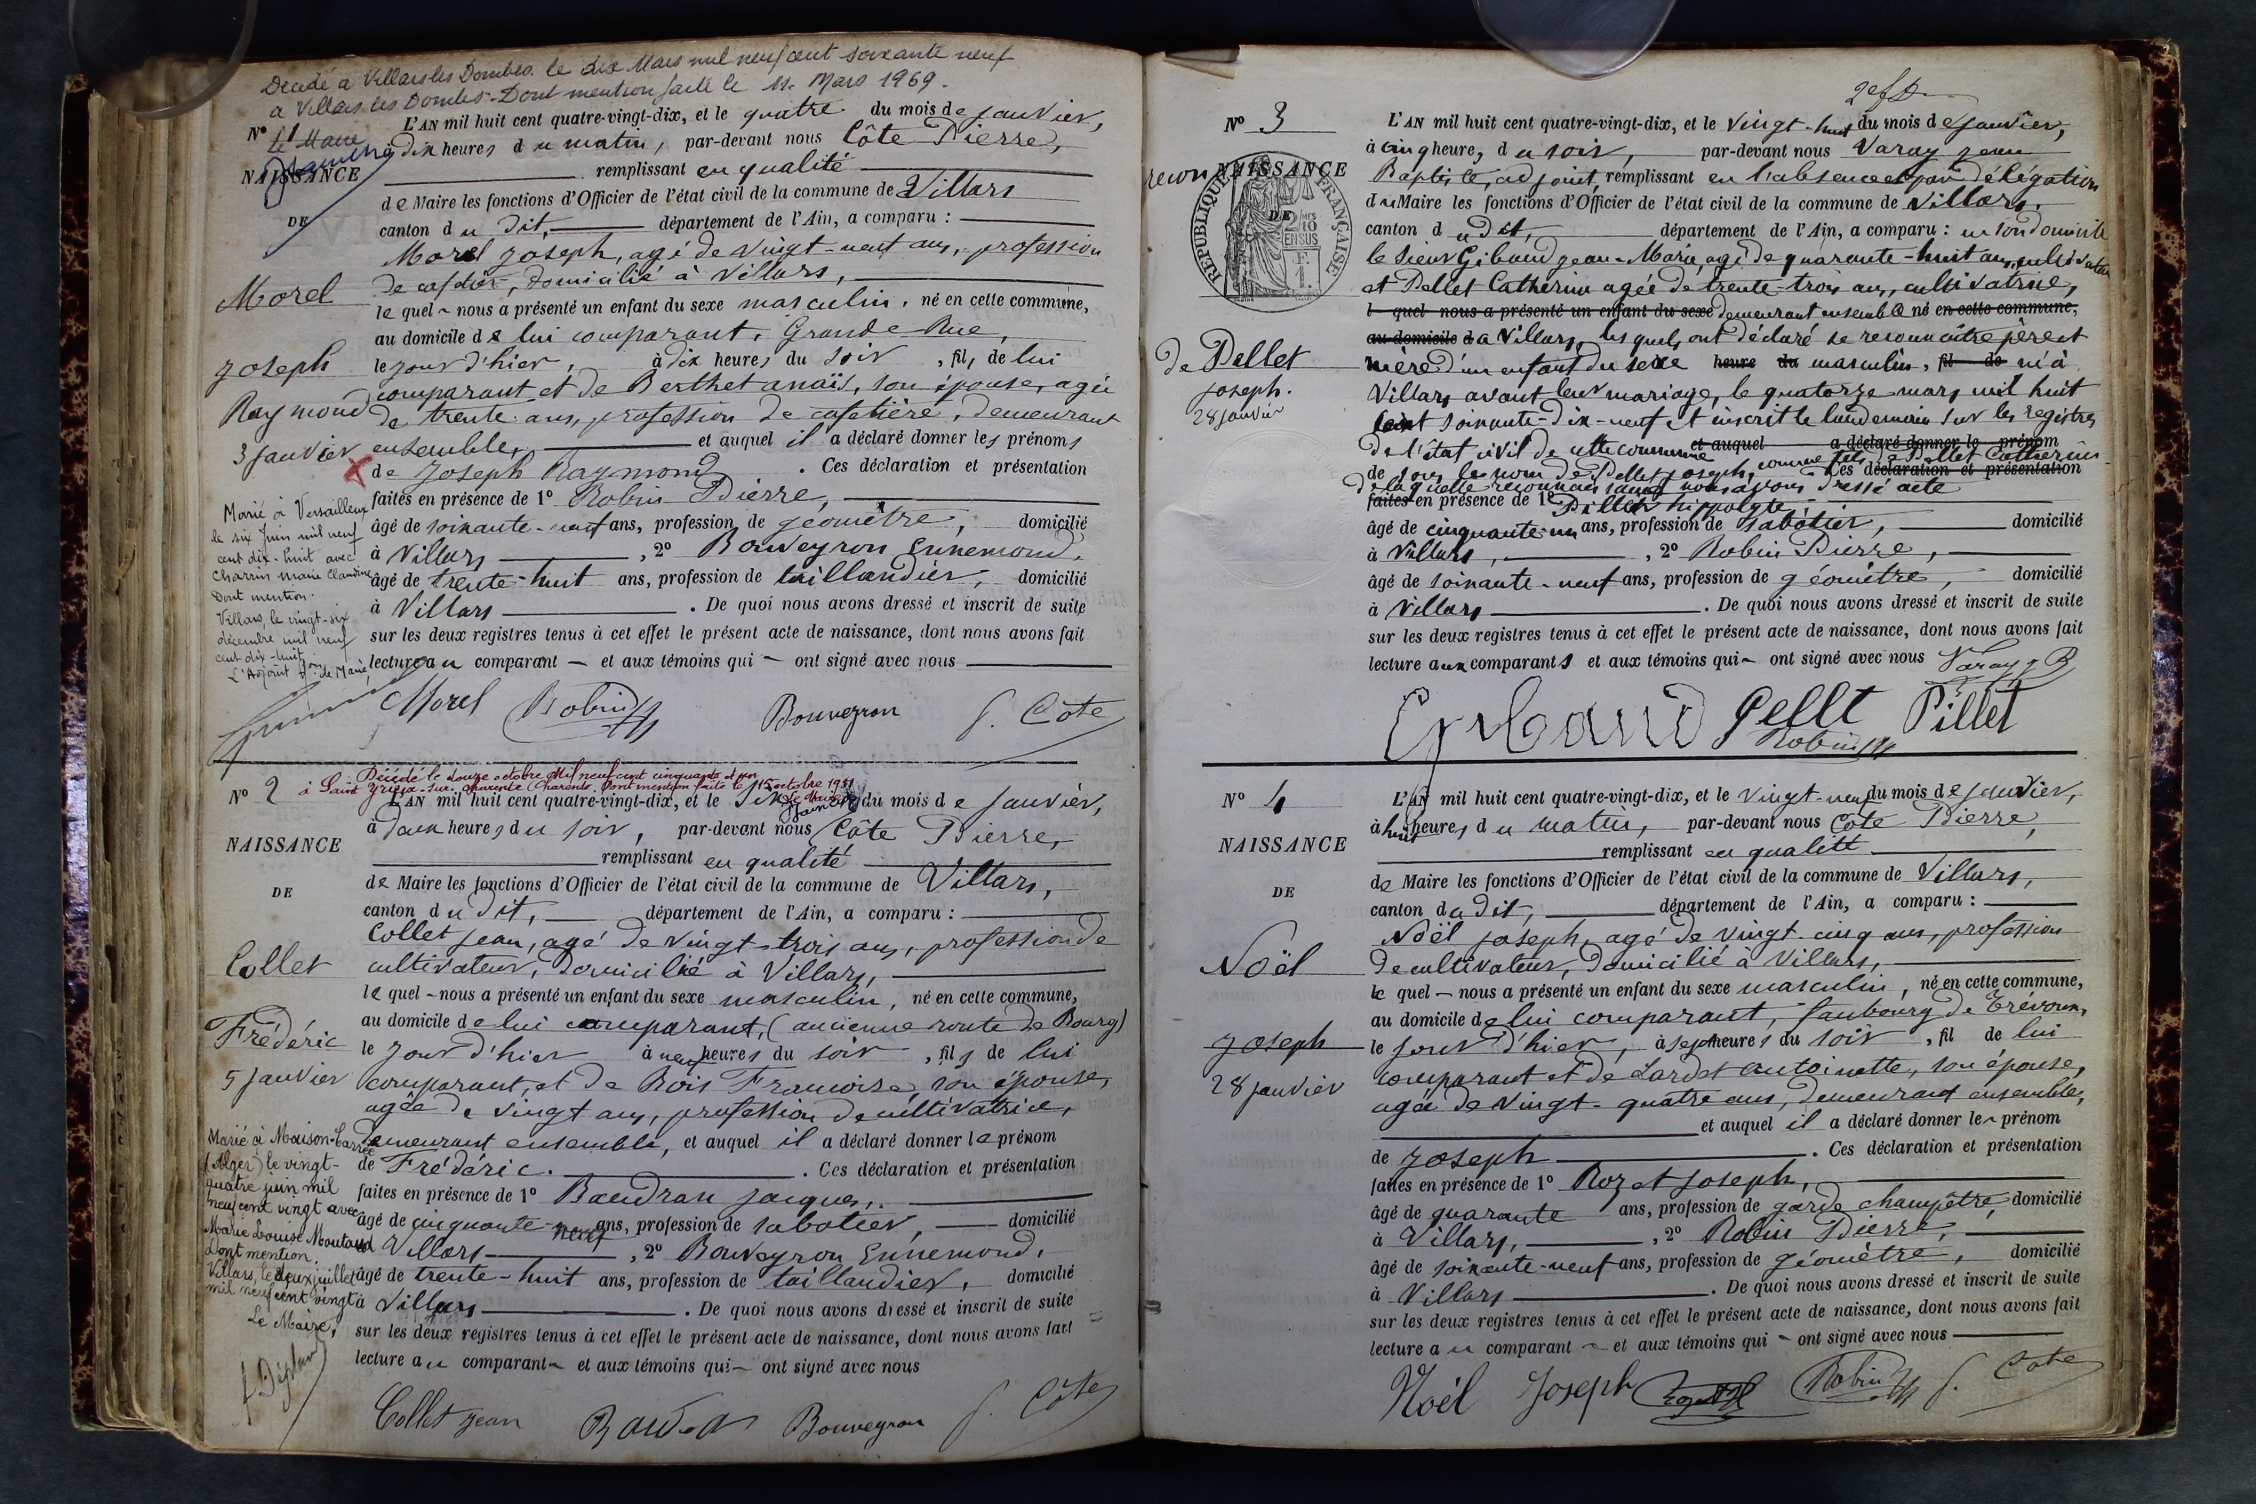 Décédé à Villars les Dombes le dix Mars mil neuf cent soixante neuf
à Villars les Dombes. Dont mention faite le 11 Mars 1969.
Le Maire
N° 1
NAISSANCE
DE
Morel
Joseph
Raymond
3 janvier
Marié à Versailleux
le six Juin mil neuf
cent dix-huit avec
Charrin Marie Claudine
Dont mention.
Villars, le vingt-six
décembre mil neuf
cent dix-huit
L'Adjoint f. on de Maire,
L'AN mil huit cent quatre-vingt-dix, et le quatre du mois de janvier,
à dix heures du matin, par-devant nous Côte Pierre,
remplissant en qualité
de Maire les fonctions d'Officier de l'état civil de la commune de Villars
canton du dit, département de l'Ain, a comparu :
Morel Joseph, agé de vingt-neuf ans, profession
de cafetier, domicilié à Villars,
lequel nous a présenté un enfant du sexe masculin, né en cette commune,
au domicile de lui comparant, Grande Rue,
le jour d'hier, à dix heures du soir, fils de lui
comparant et de Berthet anaïs, son épouse, agée
de trente ans, profession de cafetière, demeurant
ensemble, et auquel il a déclaré donner les prénoms
de Joseph Raymond. Ces déclaration et présentation
faites en présence de 1° Robin Pierre,
âgé de soixante-neuf ans, profession de géomètre, domicilié
à Villars, 2° Bouveyron Ennemond,
âgé de trente-huit ans, profession de taillandier, domicilié
à Villars. De quoi nous avons dressé et inscrit de suite
sur les deux registres tenus à cet effet le présent acte de naissance, dont nous avons fait
lecture au comparant et aux témoins qui ont signé avec nous
Morel Robin Bouveyron P. Côte
Décédé le douze octobre Mil neuf cent cinquante et un
à Saint Yrieix-sur-Charente (Charente). Dont mention faite le 15 octobre 1951
Le Maire
N° 2
NAISSANCE
DE
Collet
Frédéric
5 janvier
Marié à Maison-Carrée
(Alger) le vingt-
quatre juin mil
neuf cent vingt avec
Marie Louise Moutaud
Dont mention.
Villars, le deux juillet
mil neuf cent vingt
Le Maire,
L'AN mil huit cent quatre-vingt-dix, et le six du mois de janvier,
à deux heures du soir, par-devant nous Côte Pierre,
remplissant en qualité
de Maire les fonctions d'Officier de l'état civil de la commune de Villars,
canton du dit, département de l'Ain, a comparu :
Collet Jean, agé de vingt-trois ans, profession de
cultivateur, domicilié à Villars,
lequel nous a présenté un enfant du sexe masculin, né en cette commune,
au domicile de lui comparant, (ancienne route de Bourg)
le jour d'hier à neuf heures du soir, fils de lui
comparant, et de Bois Françoise, son épouse,
agée de vingt ans, profession de cultivatrice,
demeurant ensemble, et auquel il a déclaré donner le prénom
de Frédéric. Ces déclaration et présentation
faites en présence de 1° Baudran Jacques,
âgé de cinquante-neuf ans, profession de sabotier, domicilié
à Villars, 2° Bouveyron Ennemond,
âgé de trente-huit ans, profession de taillandier, domicilié
à Villars. De quoi nous avons dressé et inscrit de suite
sur les deux registres tenus à cet effet le présent acte de naissance, dont nous avons fait
lecture au comparant et aux témoins qui ont signé avec nous
Collet Jean Bouveyron P. Côte
N° 3
NAISSANCE
DE
RÉPUBLIQUE FRANÇAISE
2/10 EN SUS
1 F.
recon
de Pellet
Joseph.
28 janvier
L'AN mil huit cent quatre-vingt-dix, et le vingt-huit du mois de janvier,
à cinq heures du soir, par-devant nous Varay Jean
Baptiste, adjoint, remplissant en l'absence et par délégation
du Maire les fonctions d'Officier de l'état civil de la commune de Villars,
canton du dit, département de l'Ain, a comparu : en son domicile
le sieur Gibaud Jean-Marie, agé de quarante-huit ans, cultivateur
et Pellet Catherine agée de trente-trois ans, cultivatrice,
l quel nous a présenté un enfant du sexe demeurant ensemble né en cette commune,
au domicile d à Villars, lesquels ont déclaré se reconnaître père et
mère d'un enfant du sexe heure du masculin, fil de né à
Villars avant leur mariage, le quatorze mars mil huit
cent soixante-dix-neuf et inscrit le lendemain sur les registres
de l'état civil de cette commune et auquel a déclaré donner le prénom
de sous le nom de Pellet Joseph, comme fils de Pellet Catherine Ces déclaration et présentation
de laquelle reconnaissance nous avons dressé acte
faites en présence de 1° Pillet hippolyte
âgé de cinquante-un ans, profession de sabotier, domicilié
à Villars, 2° Robin Pierre,
âgé de soixante-neuf ans, profession de géomètre, domicilié
à Villars. De quoi nous avons dressé et inscrit de suite
sur les deux registres tenus à cet effet le présent acte de naissance, dont nous avons fait
lecture aux comparants et aux témoins qui ont signé avec nous Varay J B
Gibaud Pellt Pillet
Robin
N° 4
NAISSANCE
DE
Noël
Joseph
28 janvier
L'AN mil huit cent quatre-vingt-dix, et le vingt-neuf du mois de janvier,
à huit heures du matin, par-devant nous Côte Pierre,
remplissant en qualité
de Maire les fonctions d'Officier de l'état civil de la commune de Villars,
canton du dit, département de l'Ain, a comparu :
Noël Joseph, agé de vingt-cinq ans, profession
de cultivateur, domicilié à Villars,
lequel nous a présenté un enfant du sexe masculin, né en cette commune,
au domicile de lui comparant, faubourg de Trévoux,
le jour d'hier, à sept heures du soir, fil de lui
comparant et de Lardet antoinette, son épouse,
agée de vingt-quatre ans, demeurant ensemble,
et auquel il a déclaré donner le prénom
de Joseph. Ces déclaration et présentation
faites en présence de 1° Rozet Joseph,
âgé de quarante ans, profession de garde champêtre, domicilié
à Villars, 2° Robin Pierre,
âgé de soixante-neuf ans, profession de géomètre, domicilié
à Villars. De quoi nous avons dressé et inscrit de suite
sur les deux registres tenus à cet effet le présent acte de naissance, dont nous avons fait
lecture au comparant et aux témoins qui ont signé avec nous
Noël Joseph Robin P. Côte